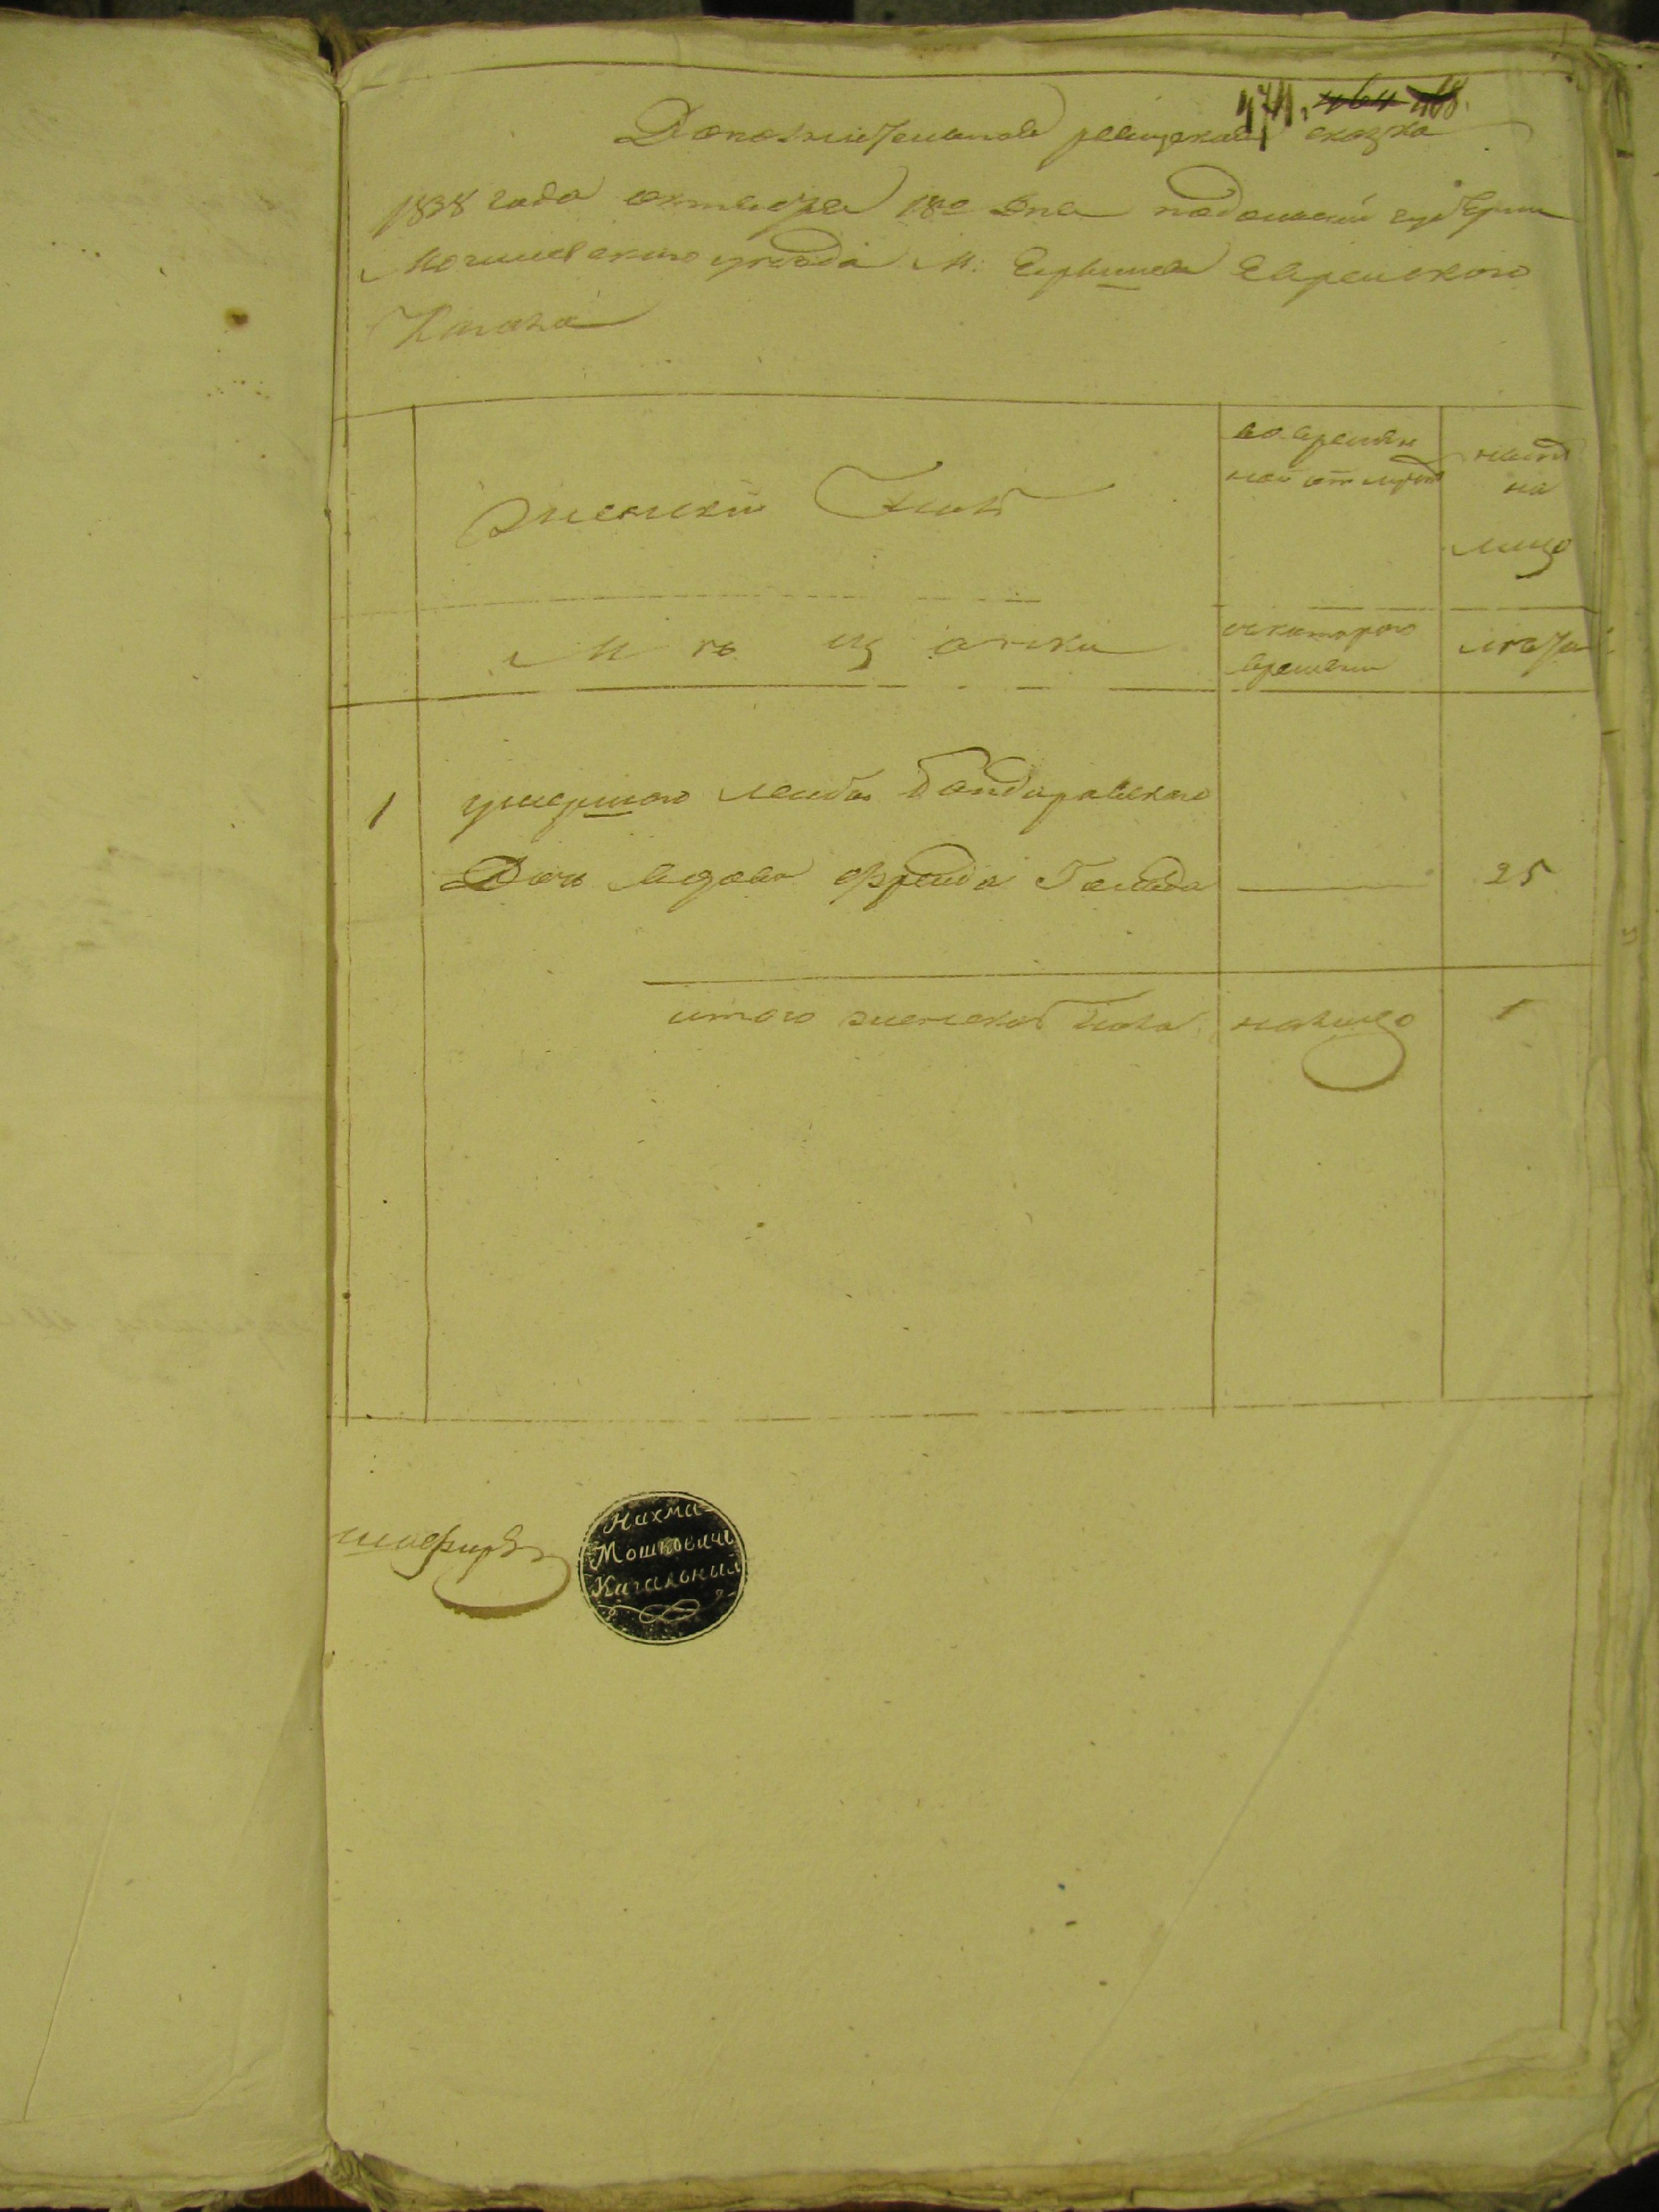 471. 464 468.
Дополнительная ревизская сказка
1838 года октября 18го дня подольской губернии
Могилевского уезда м: Еврейского
Кагала
женский пол
во времян
ной отлуч
ныне
на
лицо
мещанки
с которого
времени
лета
1 умершого Лейбы Бондаровского
Дочь вдова Фрейда Гольда 25
итого женска пола налицо 1
Нахма
Мошковичь
Кагальный